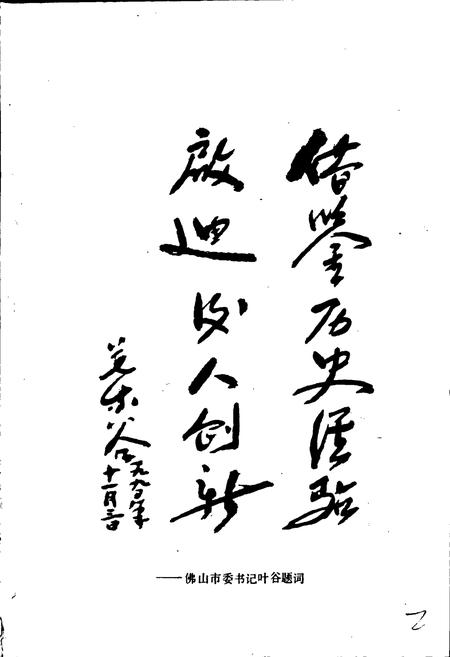 借鉴历史经验
启迪后人创新
叶谷
一九九〇年
十一月三日
——佛山市委书记叶谷题词